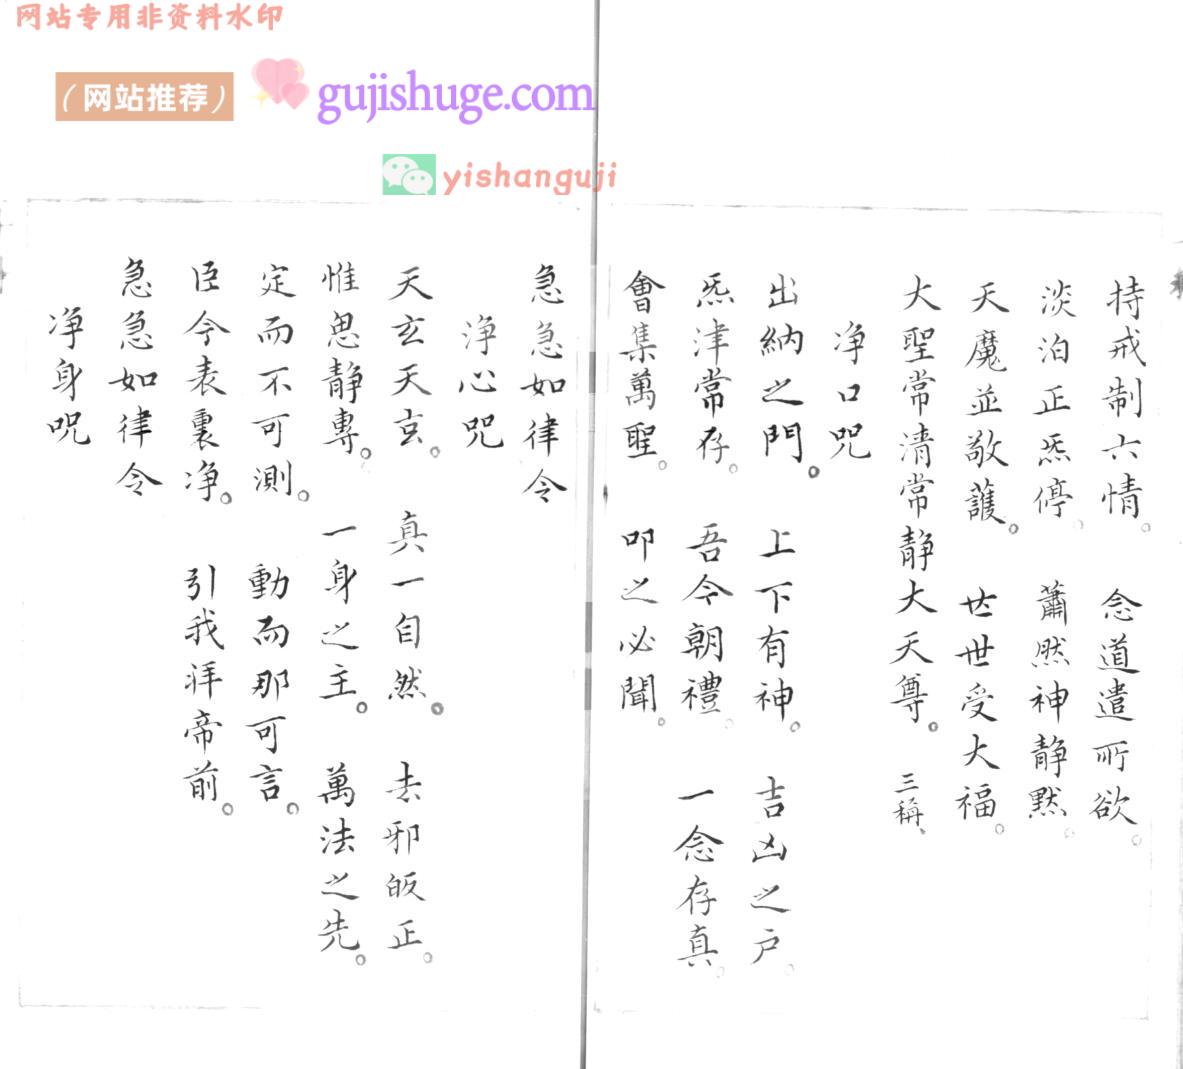 网站专用非资料水印
（网站推荐）
gujishuge.com
yishanguji
持戒制六情。念道遣所欲。
淡泊正炁停。蕭然神静默。
天魔並敬護。世世受大福。
大聖常清常静大天尊。三稱、
净口咒
出納之門。上下有神。吉凶之户。
炁津常存。吾今朝禮。一念存真。
會集萬聖。叩之必聞。
急急如律令
净心咒
天玄天玄。真一自然。去邪皈正。
惟思静專。一身之主。萬法之先。
定而不可測。動而那可言。
臣今表裏净。引我拜帝前。
急急如律令
净身咒